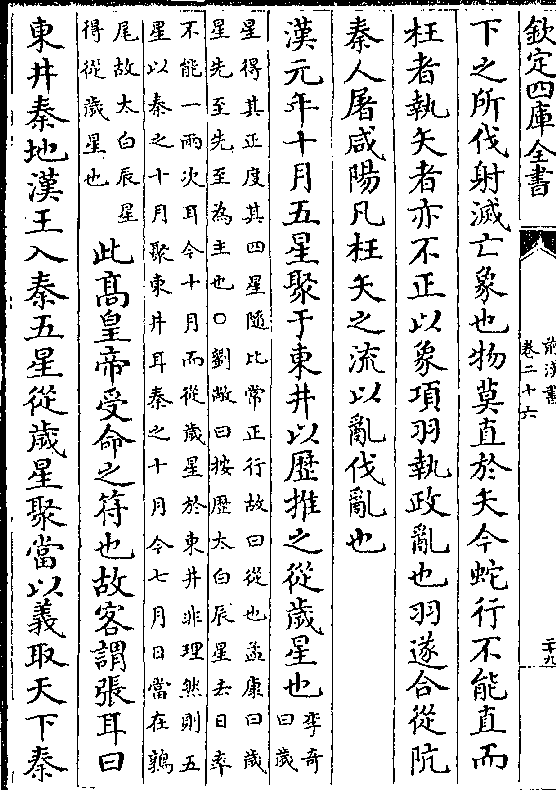 欽定四庫全書
前漢書
卷二十六
二十九
下之所伐射滅亡象也物莫直於矢今蛇行不能直而
枉者執矢者亦不正以象項羽執政亂也羽遂合從阬
秦人屠咸陽凡枉矢之流以亂伐亂也
漢元年十月五星聚于東井以歴推之從歲星也李奇
曰歲
星得其正度其四星隨比常正行故曰從也孟康曰歲
星先至先至為主也○劉攽曰按歴太白辰星去日率
不能一兩次耳今十月而從歲星於東井非理然則五
星以秦之十月聚東井耳秦之十月今七月日當在鶉
尾故太白辰星
得從歲星也
此髙皇帝受命之符也故客謂張耳曰
東井秦地漢王入秦五星從歲星聚當以義取天下秦